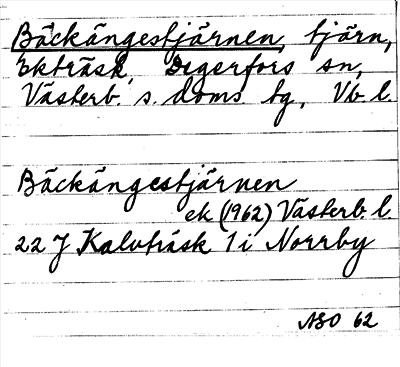 Bäckängestjärnen, tjärn,
Ekträsk, Degerfors sn,
Västerb. s. doms tg, Vb l.
Bäckängestjärnen
ek (1962) Västerb. l
22 J Kalvträsk 1 i Norrby
NSO 62